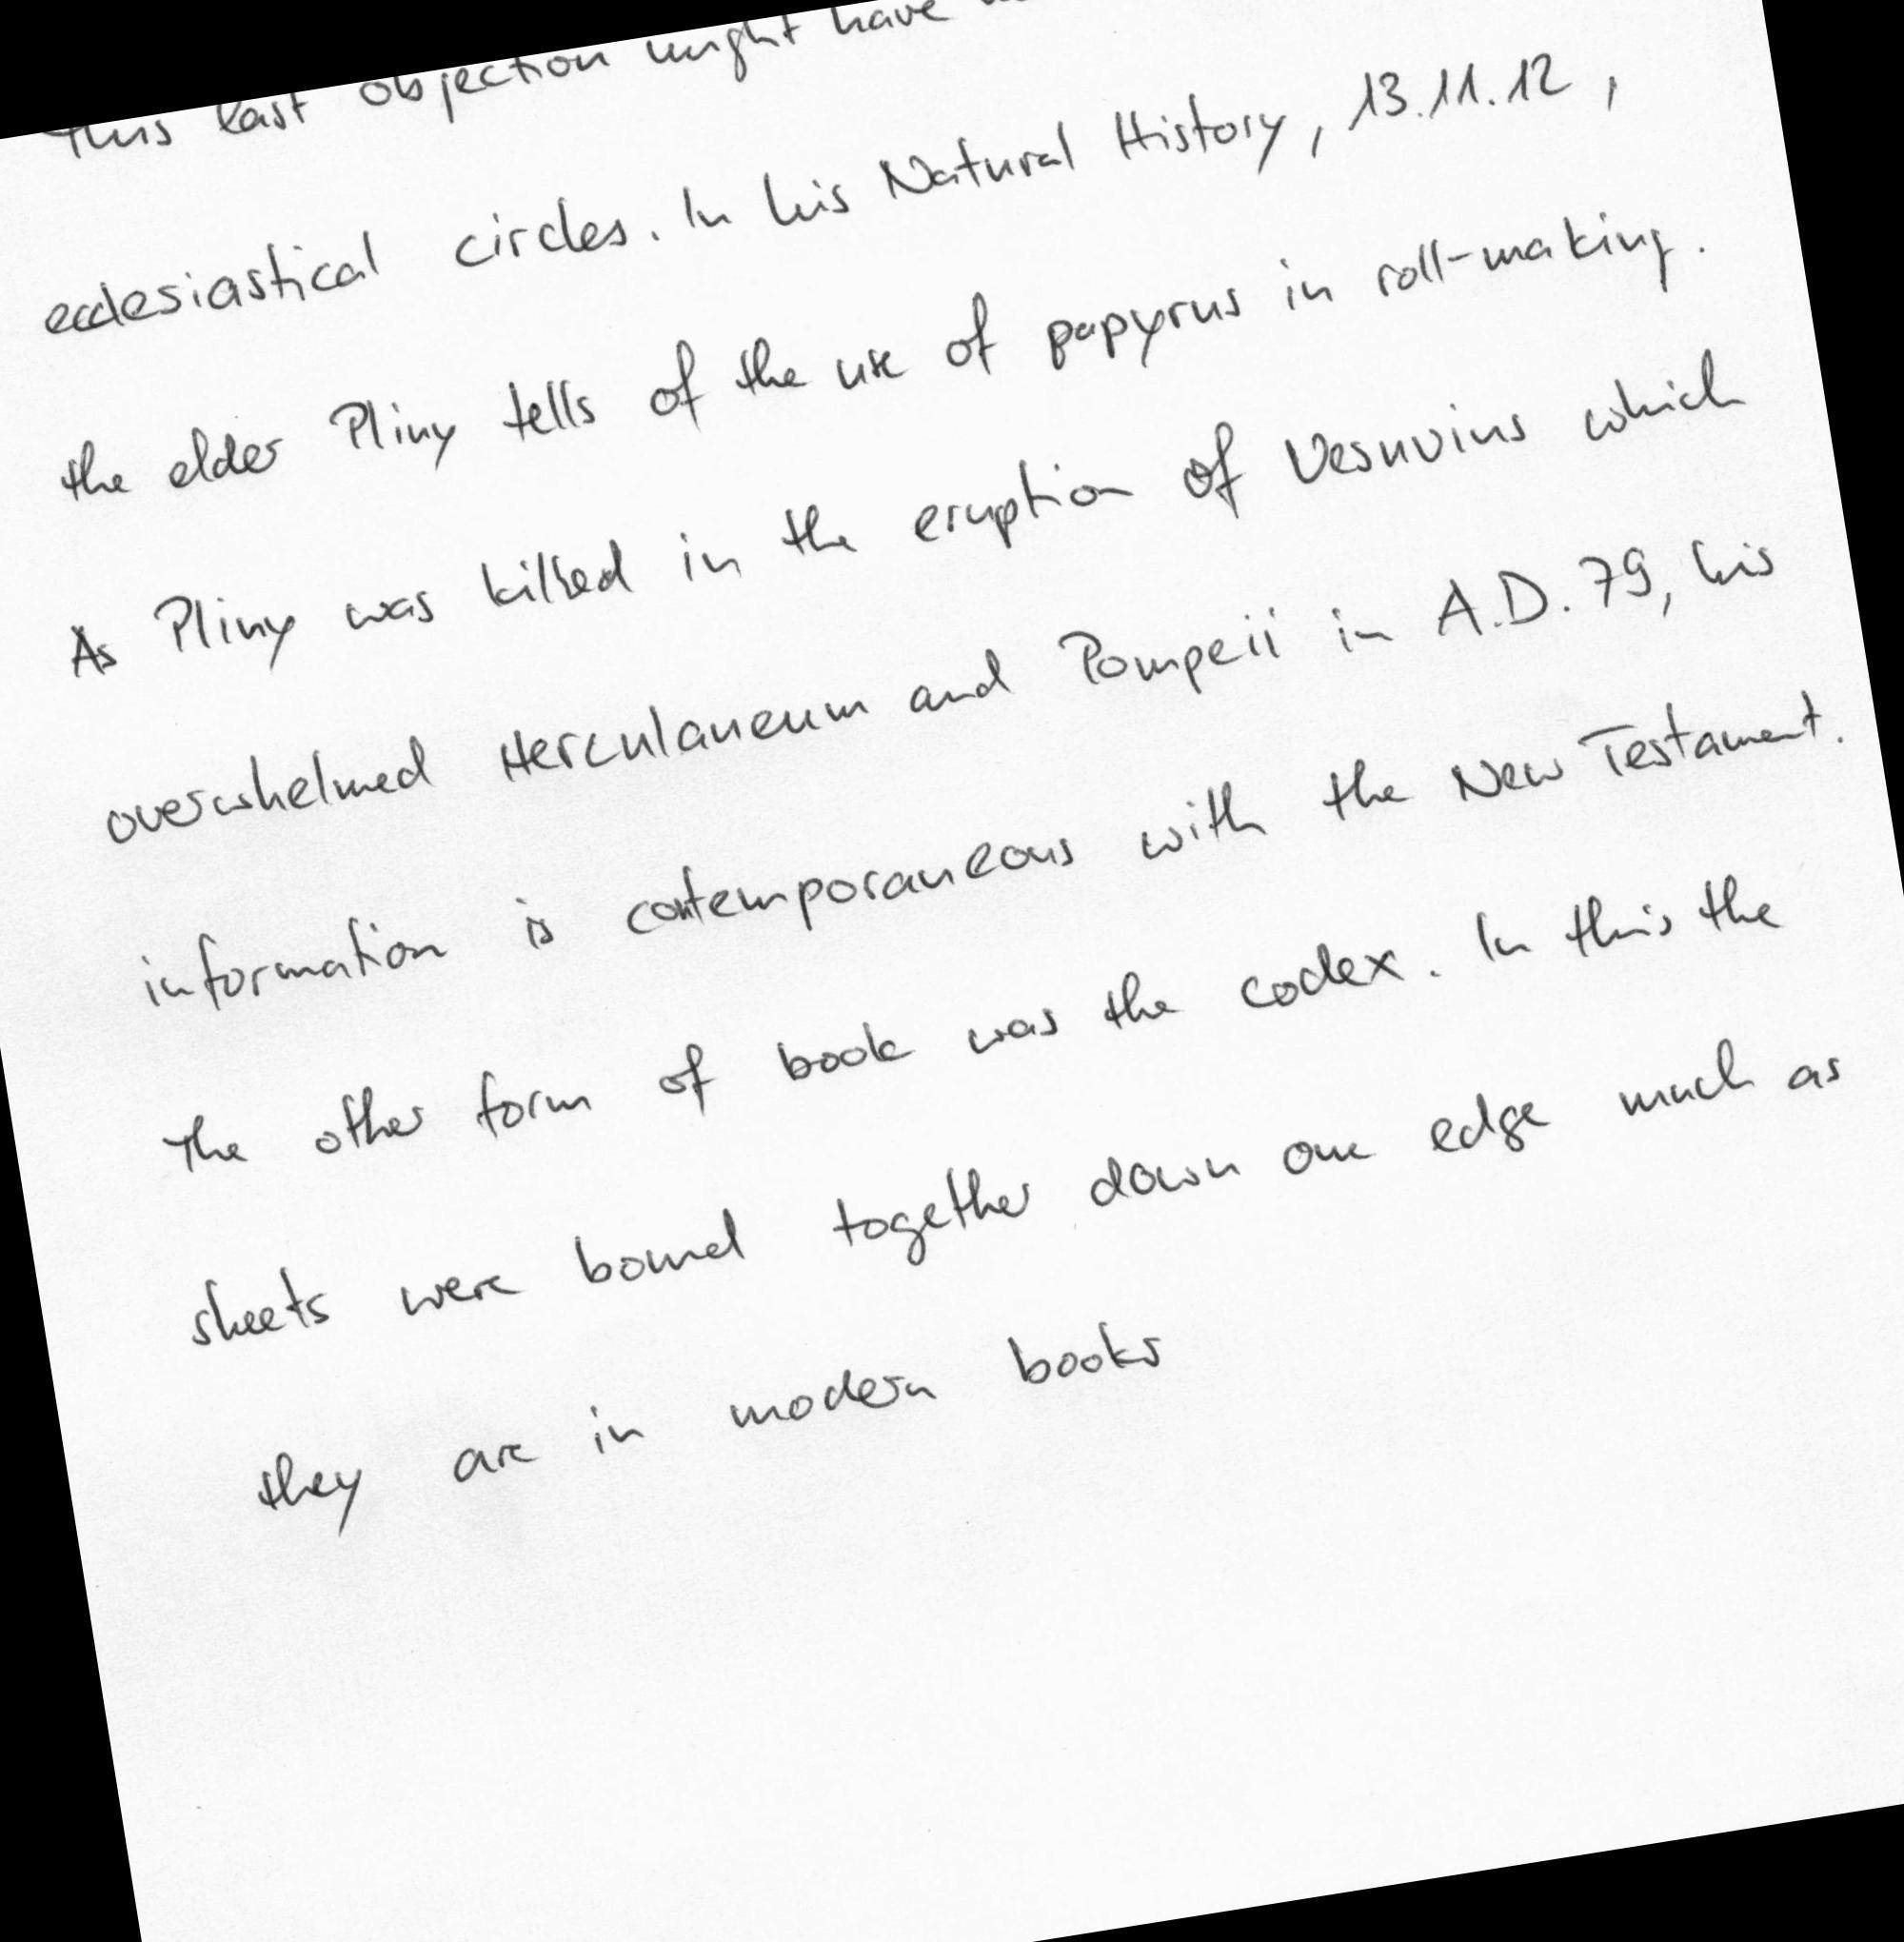 This last objection might have
ecclesiastical circles. In his Natural History, 13.11.12,
the elder Pliny tells of the use of papyrus in roll-making.
As Pliny was killed in the eruption of Vesuvius which
overwhelmed Herculaneum and Pompeii in A.D. 79, his
information is contemporaneous with the New Testament.
The other form of book was the codex. In this the
sheets were bound together down one edge much as
they are in modern books